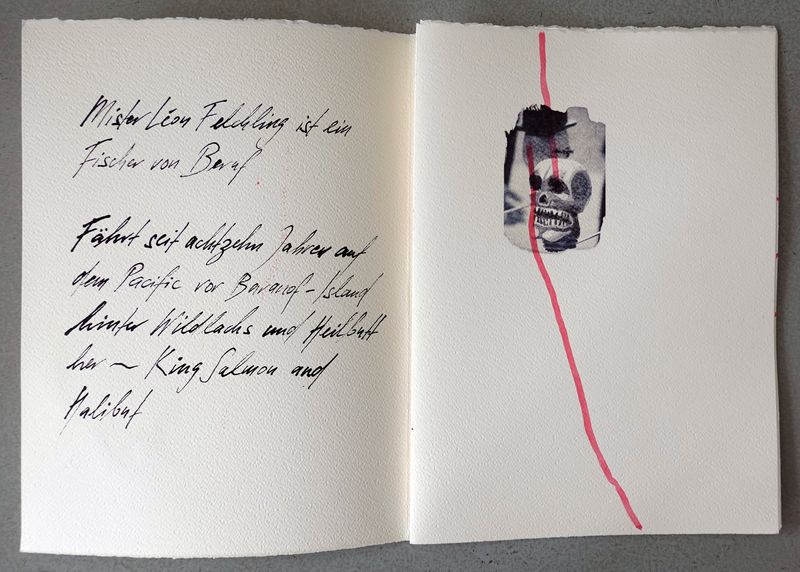 Mister Léon Felchling ist ein
Fischer von Beruf
Fährt seit achtzehn Jahren auf
dem Pacific vor Baranof-Island
hinter Wildlachs und Heilbutt
her ~ King Salmon and
Halibut